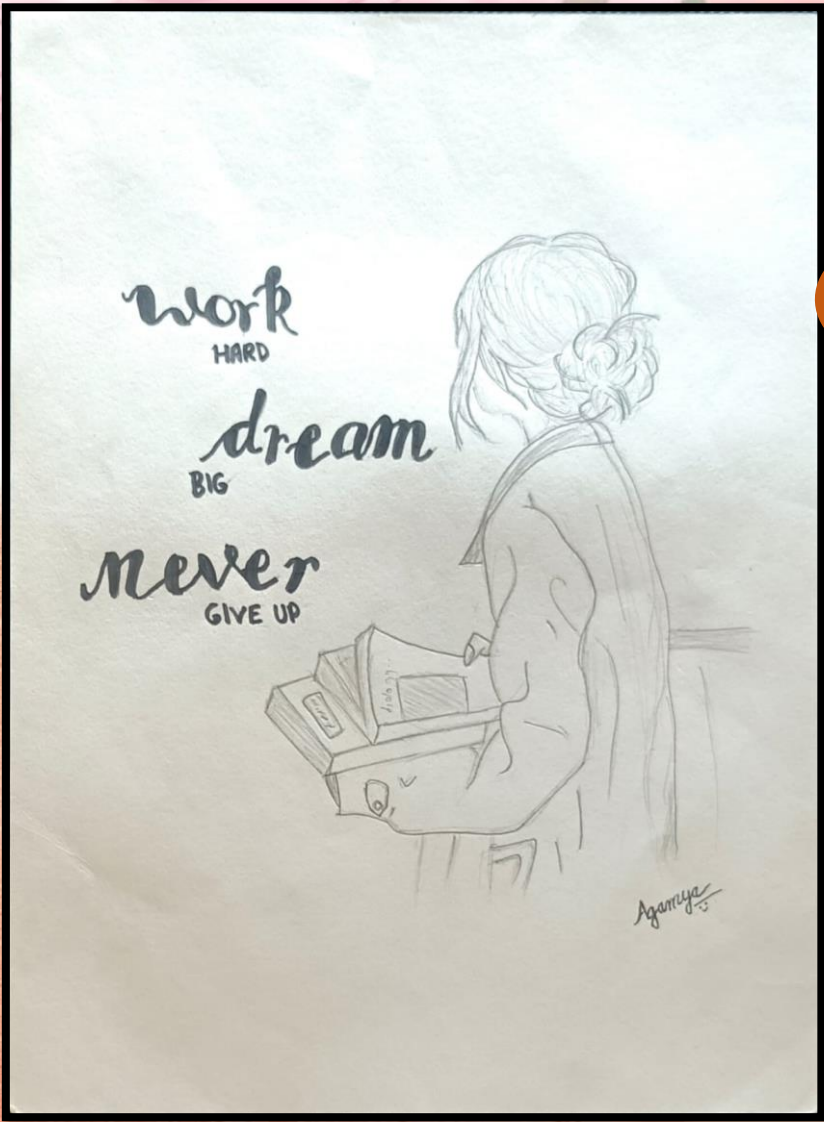 work
HARD
dream
BIG
never
GIVE UP
Agamya